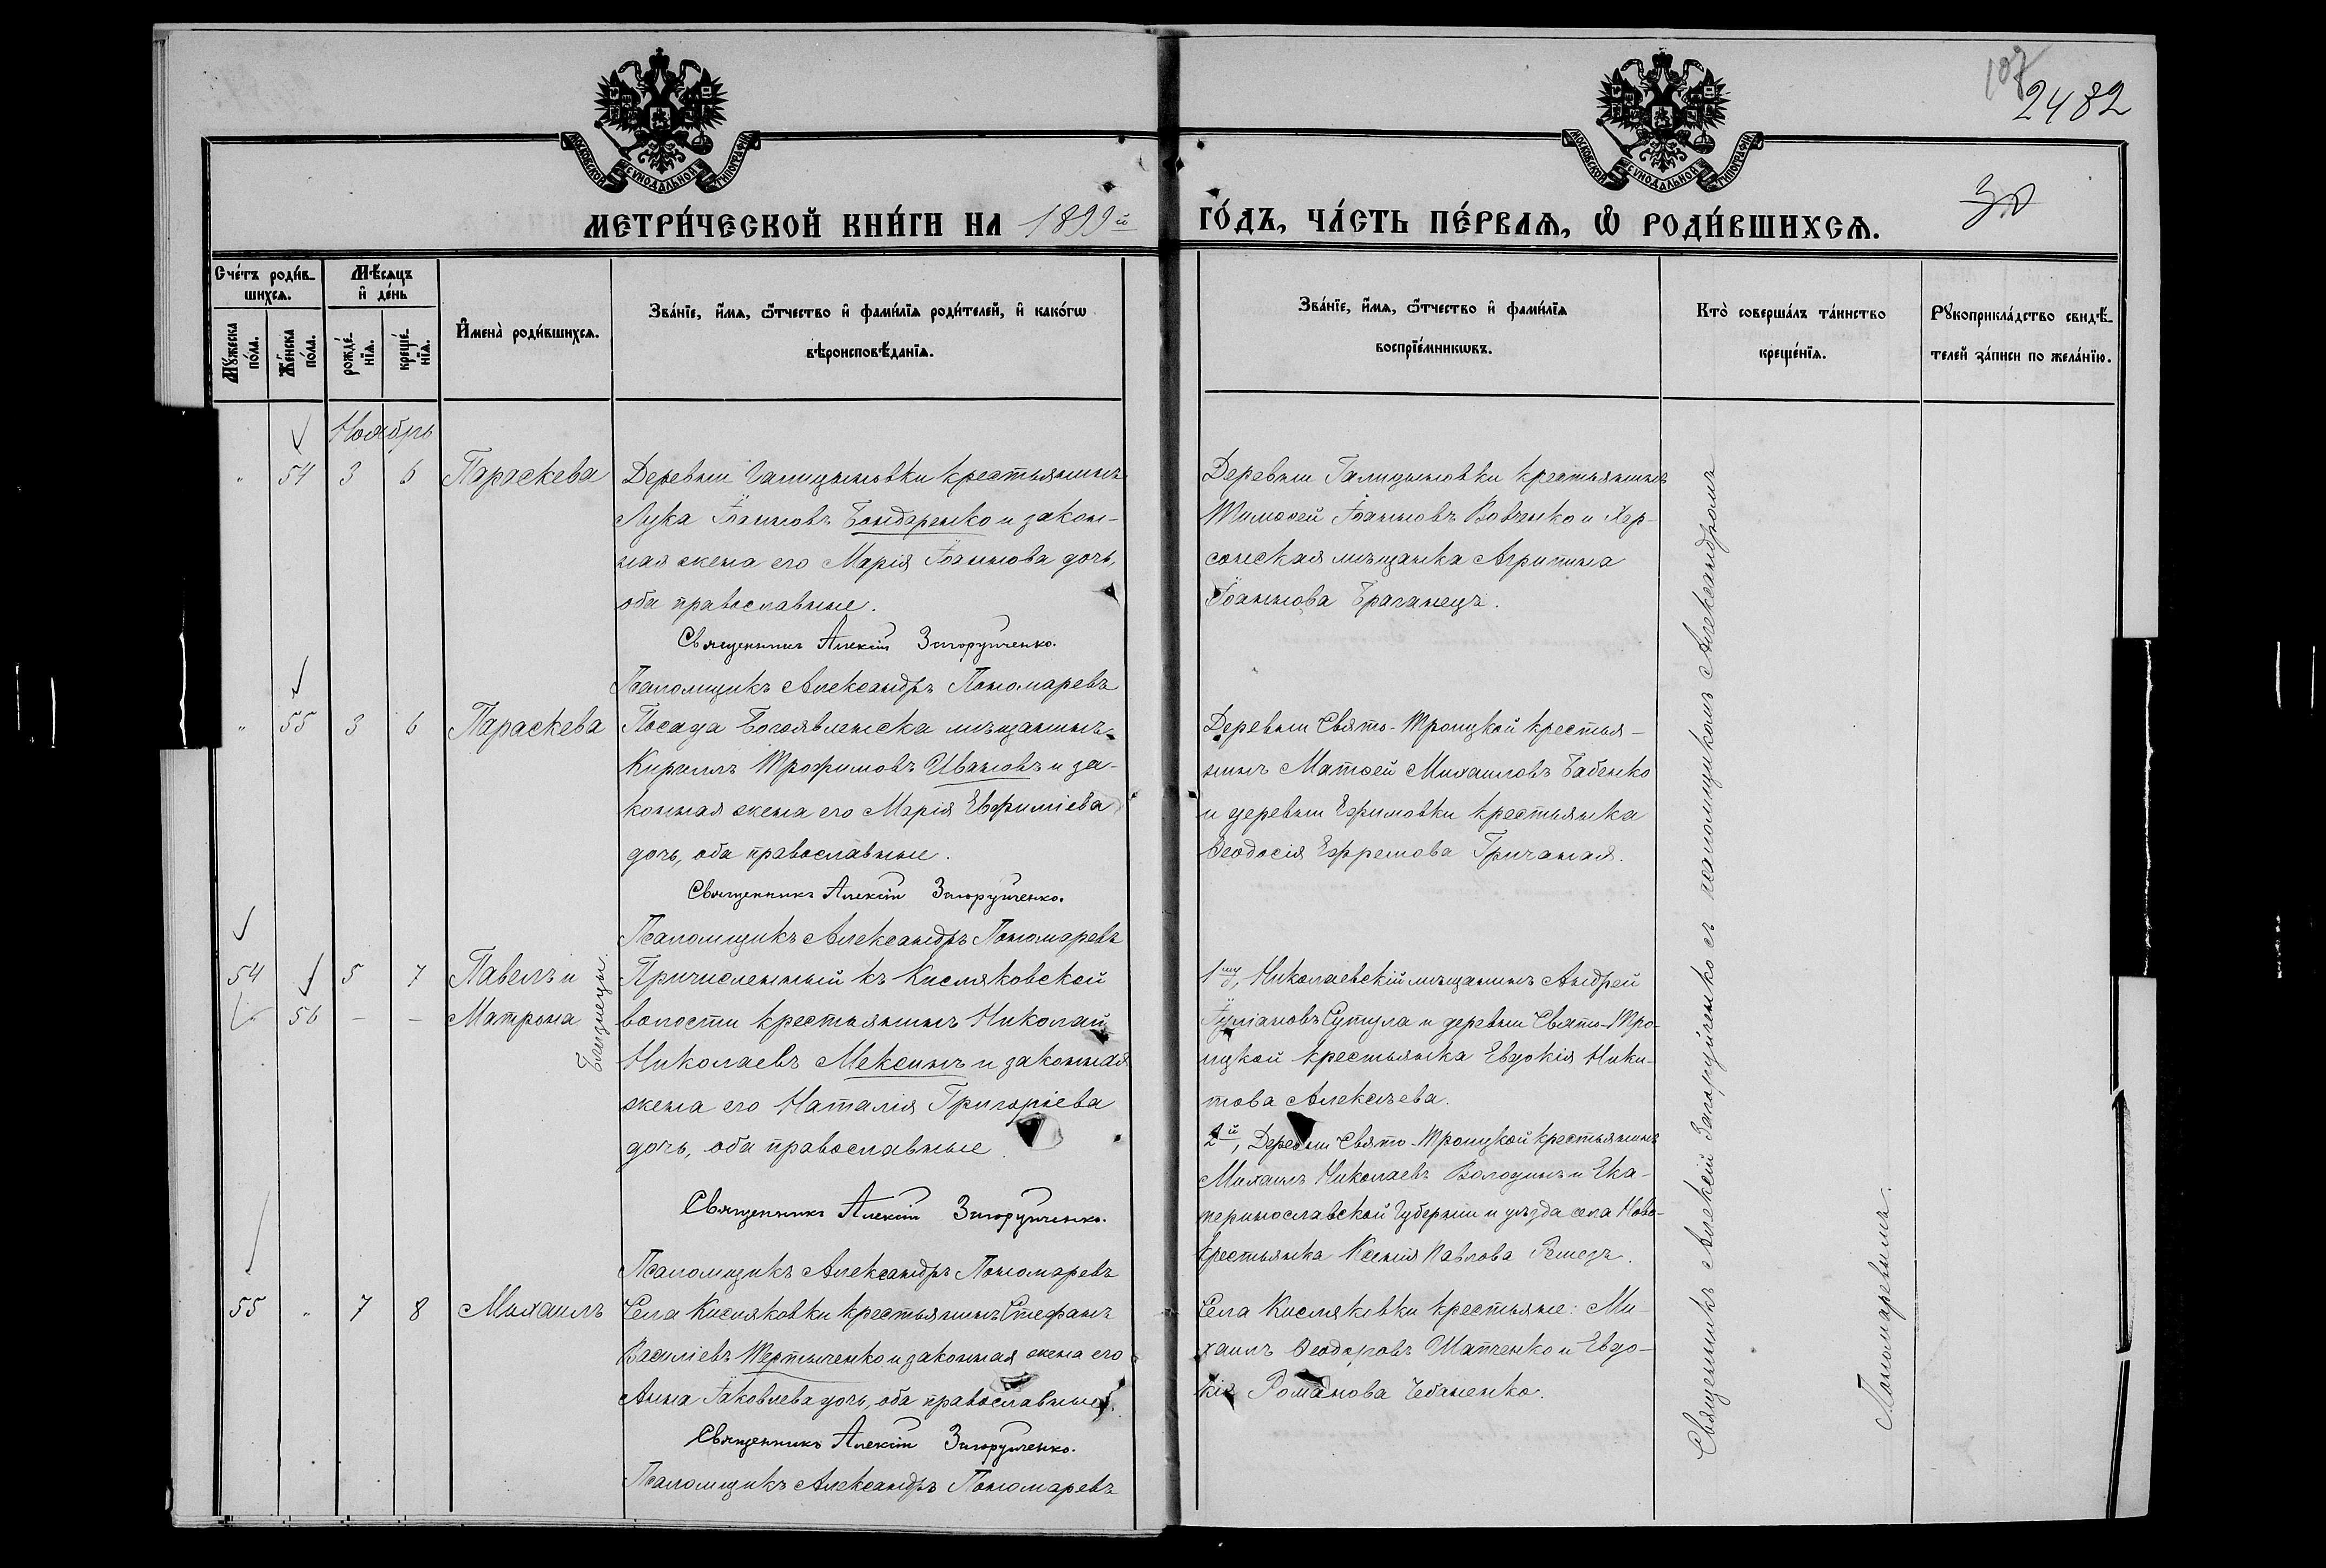 107
2482
30
МОСКОВСКОЙ СѴНОДАЛЬНОЙ ТИПОГРАФІИ
МОСКОВСКОЙ СѴНОДАЛЬНОЙ ТИПОГРАФІИ
МЕТРИ́ЧЕСКОЙ КНИ́ГИ НА 1899й
ГО́ДЪ, ЧА́СТЬ ПЕ́РВАѦ, Ѡ҆ РОДИ́ВШИХСѦ.
Сче́тъ роди́вшихсѧ.
Мꙋ́жеска по́ла.
Же́нска по́ла.
Мѣ́сѧцъ и҆ де́нь
рожде́нїѧ.
креще́нїѧ.
И҆мена̀ роди́вшихсѧ.
Зва́нїе, и҆́мѧ, ѻ҆́тчество и҆ фами́лїѧ роди́телей, и҆ како́гѡ
вѣроисповѣ́данїѧ.
Зва́нїе, и҆́мѧ, ѻ҆́тчество и҆ фами́лїѧ
воспрїе́мникѡвъ.
Кто̀ соверша́лъ та́инство
креще́нїѧ.
Рꙋкоприкла́дство свидѣ́-
телей за́писи по жела́нїю.
Ноябрь
" 54 3 6 Параскева
Деревни Галицыновки крестьянинъ
Лука Іоанновъ Бондаренко и закон-
ная жена его Марія Іоаннова дочь,
оба православные.
Священникъ Алексій Загоруйченко.
Псаломщикъ Александръ Пономаревъ
Деревни Галицыновки крестьянинъ
Тимоѳей Іоанновъ Вовченко и Хер-
сонская мѣщанка Агрипина
Іоаннова Браганецъ.
" 55 3 6 Параскева
Посада Богоявленска мѣщанинъ
Кириллъ Трофимовъ Ивановъ и за-
конная жена его Марія Евфиміева
дочь, оба православные.
Священникъ Алексій Загоруйченко.
Псаломщикъ Александръ Пономаревъ
Деревни Свято-Троицкой крестья-
нинъ Матѳей Михаиловъ Бабенко
и деревни Ефимовки крестьянка
Ѳеодосія Ефремова Гричаная.
54 5 7 Павелъ и
56 - - Матрона
Близнецы.
Причисленный къ Кисляковской
волости крестьянинъ Николай
Николаевъ Мексинъ и законная
жена его Наталія Григоріева
дочь, оба православные.
Священникъ Алексій Загоруйченко.
Псаломщикъ Александръ Пономаревъ
1му, Николаевскій мѣщанинъ Андрей
Іуліановъ Сутула и деревни Свято-Тро-
ицкой крестьянка Евдокія Ники-
това Алексѣева.
2й, Деревни Свято-Троицкой крестьянинъ
Михаилъ Николаевъ Володинъ и Ека-
теринославской Губерніи и уѣзда села Ново-
крестьянка Ксенія Павлова
55 " 7 8 Михаилъ
Села Кисляковки крестьянинъ Стефанъ
Василіевъ Тертыченко и законная жена его
Анна Іаковлева дочь, оба православные.
Священникъ Алексій Загоруйченко.
Псаломщикъ Александръ Пономаревъ
Села Кисляковки крестьяне: Ми-
хаилъ Ѳеодоровъ Шапченко и Евдо-
кія Романова Чебаненко.
Священникъ Алексій Загоруйченко съ псаломщикомъ Александромъ
Пономаревымъ.